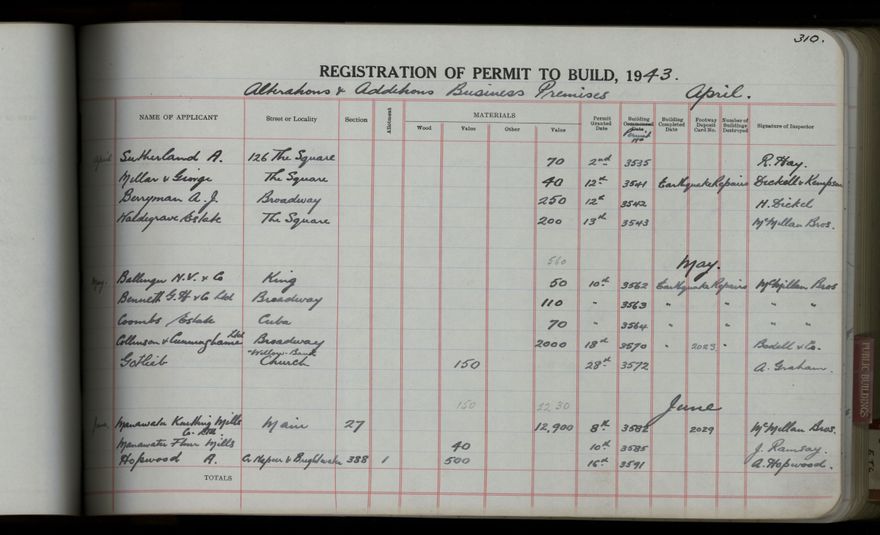 310.
REGISTRATION OF PERMIT TO BUILD, 1943.
Alterations & Additions Business Premises April.
NAME OF APPLICANT Street or Locality Section Allotment MATERIALS Permit Granted Date Building Commenced Date Permit No Building Completed Date Footway Deposit Card No. Number of Buildings Destroyed Signature of Inspector
Wood Value Other Value
April Sutherland A. 126 The Square 70 2nd 3535 R. Hay.
Millar & Giorgi The Square 40 12th 3541 Earthquake Repairs Dickell & Kempson
Berryman A. J. Broadway 250 12th 3542 H. Dickel
Waldegrave Estate The Square 200 13th 3543 McMillan Bros.
560 May.
May. Ballinger N.V. & Co King 50 10th 3562 Earthquake Repairs McMillan Bros
Bennett G.H & Co Ltd Broadway 110 " 3563 " " " "
Coombs Estate Cuba 70 " 3564 " " " "
Collinson & Cunninghame Ltd Broadway 2000 18th 3570 " 2023 " Bodell & Co.
Gotlieb Willow-Bank Church 150 28th 3572 A. Graham.
150 2230 June
June Manawatu Knitting Mills Co. Ltd Main 27 12,900 8th 3582 2029 McMillan Bros.
Manawatu Flour Mills 40 10th 3585 J. Ramsay.
Hopwood A. Cr Napier & Brightwater 388 1 500 16th 3591 A. Hopwood.
TOTALS
PUBLIC BUILDINGS